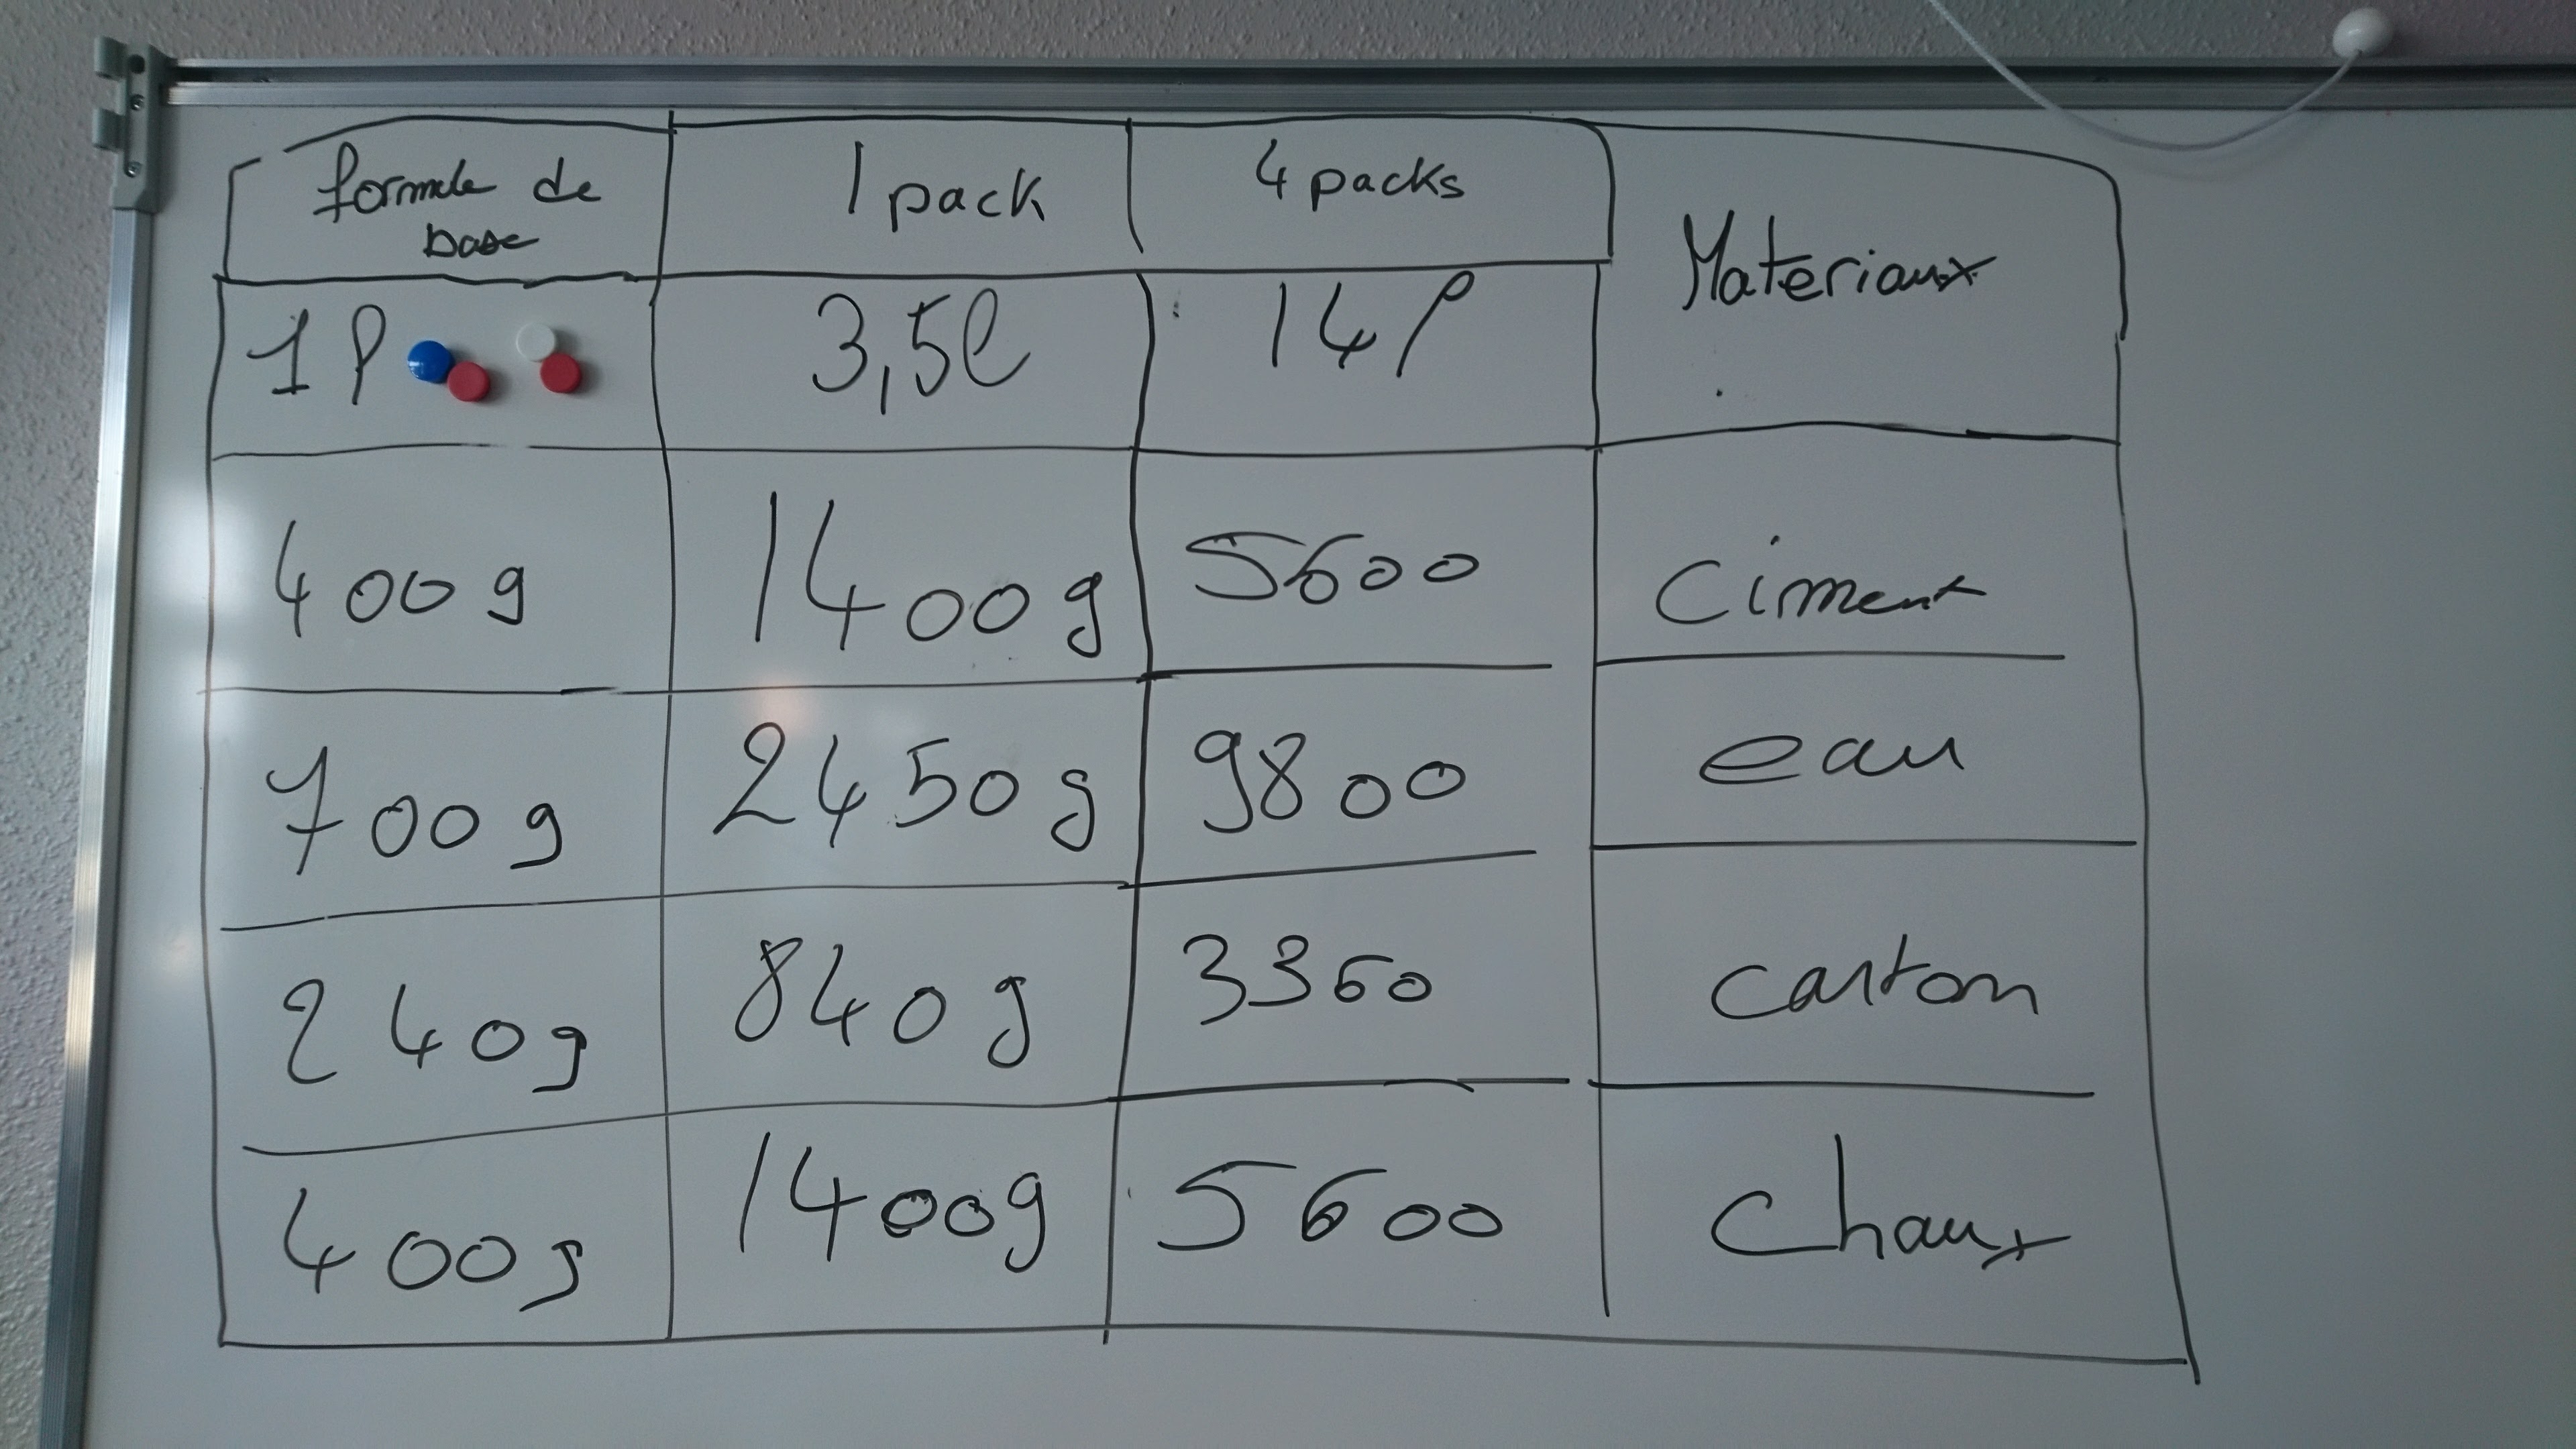 formule de base
1 pack
4 packs
Materiaux
1 l
3,5l
14 l
400 g
1400 g
5600
ciment
700 g
2450 g
9800
eau
240g
840 g
3360
carton
400g
1400g
5600
chaux